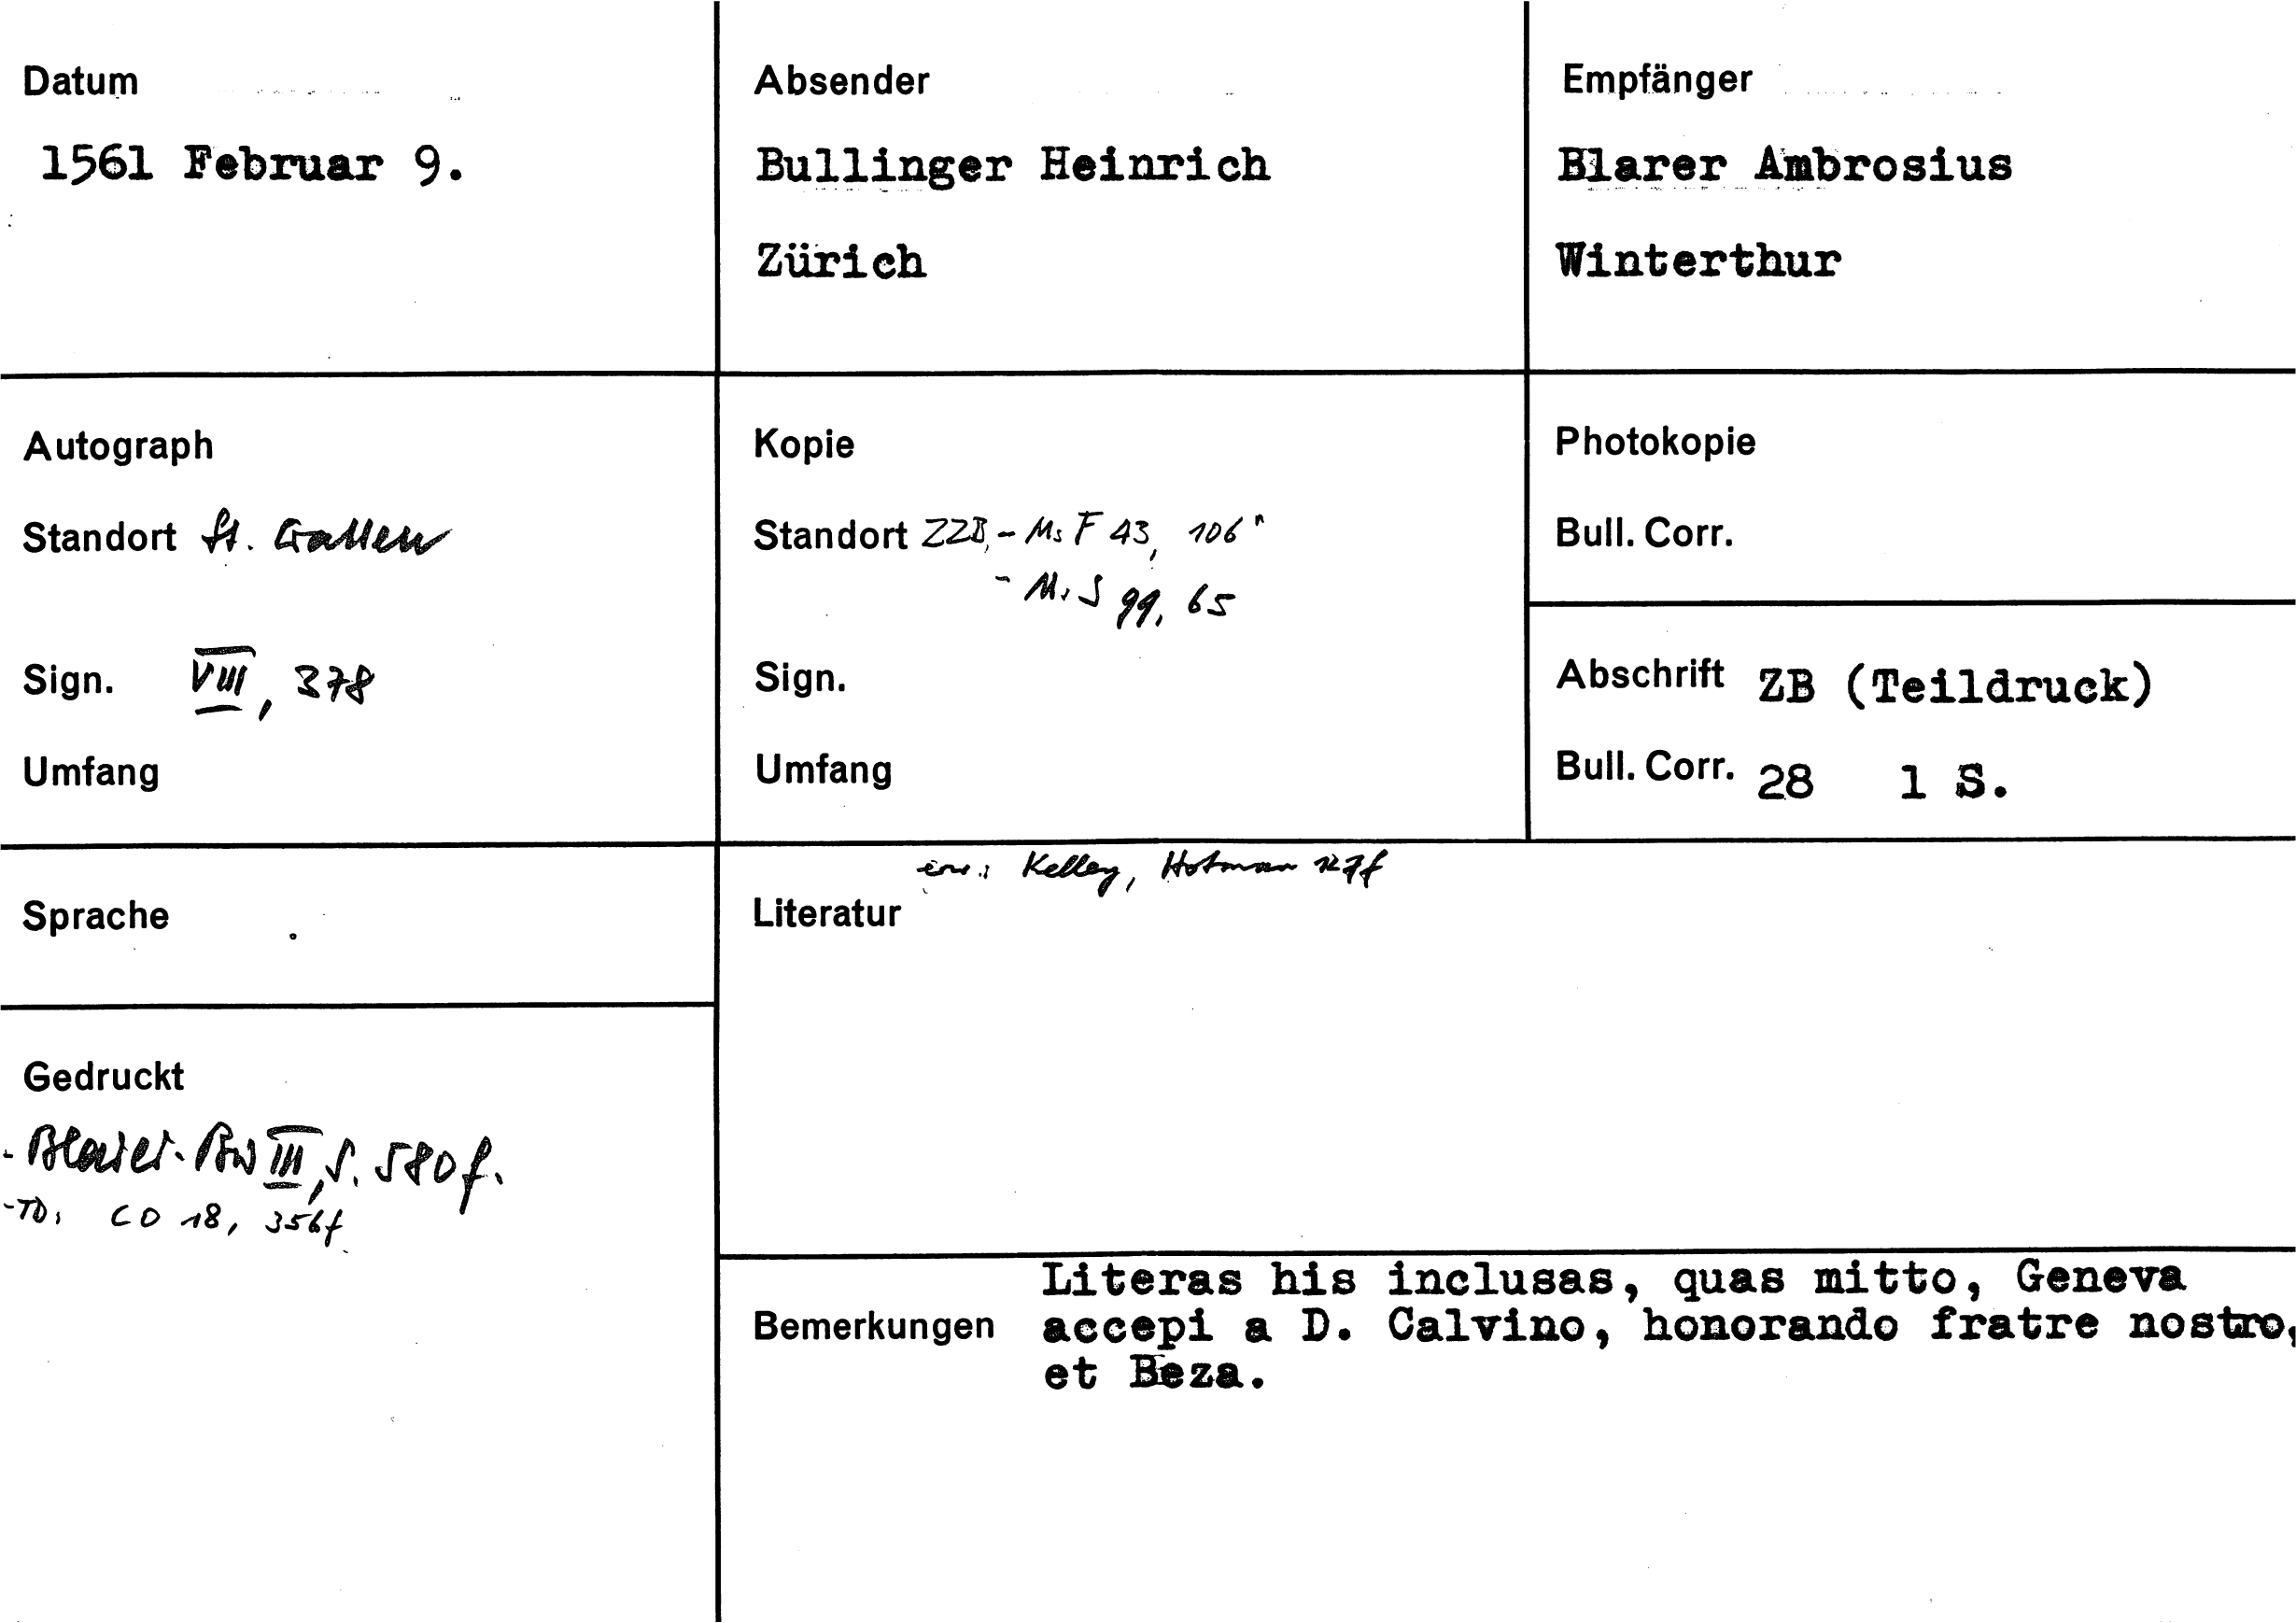 Datum
1561 Februar 9.
Absender
Bullinger Heinrich
Zürich
Empfänger
Blarer Ambrosius
Winterthur
Autograph
Standort St. Gallen
Sign. VIII, 378
Umfang
Kopie
Standort ZZB, - Ms F 43, 106
- Ms S 99, 65
Sign.
Umfang
Photokopie
Bull. Corr.
Abschrift ZB (Teildruck)
Bull. Corr. 28 1 S.
Sprache
erw.: Kelley, Hotman 127f
Literatur
Gedruckt
- Blarer-BW III, S. 580f.
- TD: CO 18, 356f
Bemerkungen
Literas his inclusas, quas mitto, Geneva
accepi a D. Calvino, honorando fratre nostro,
et Beza.